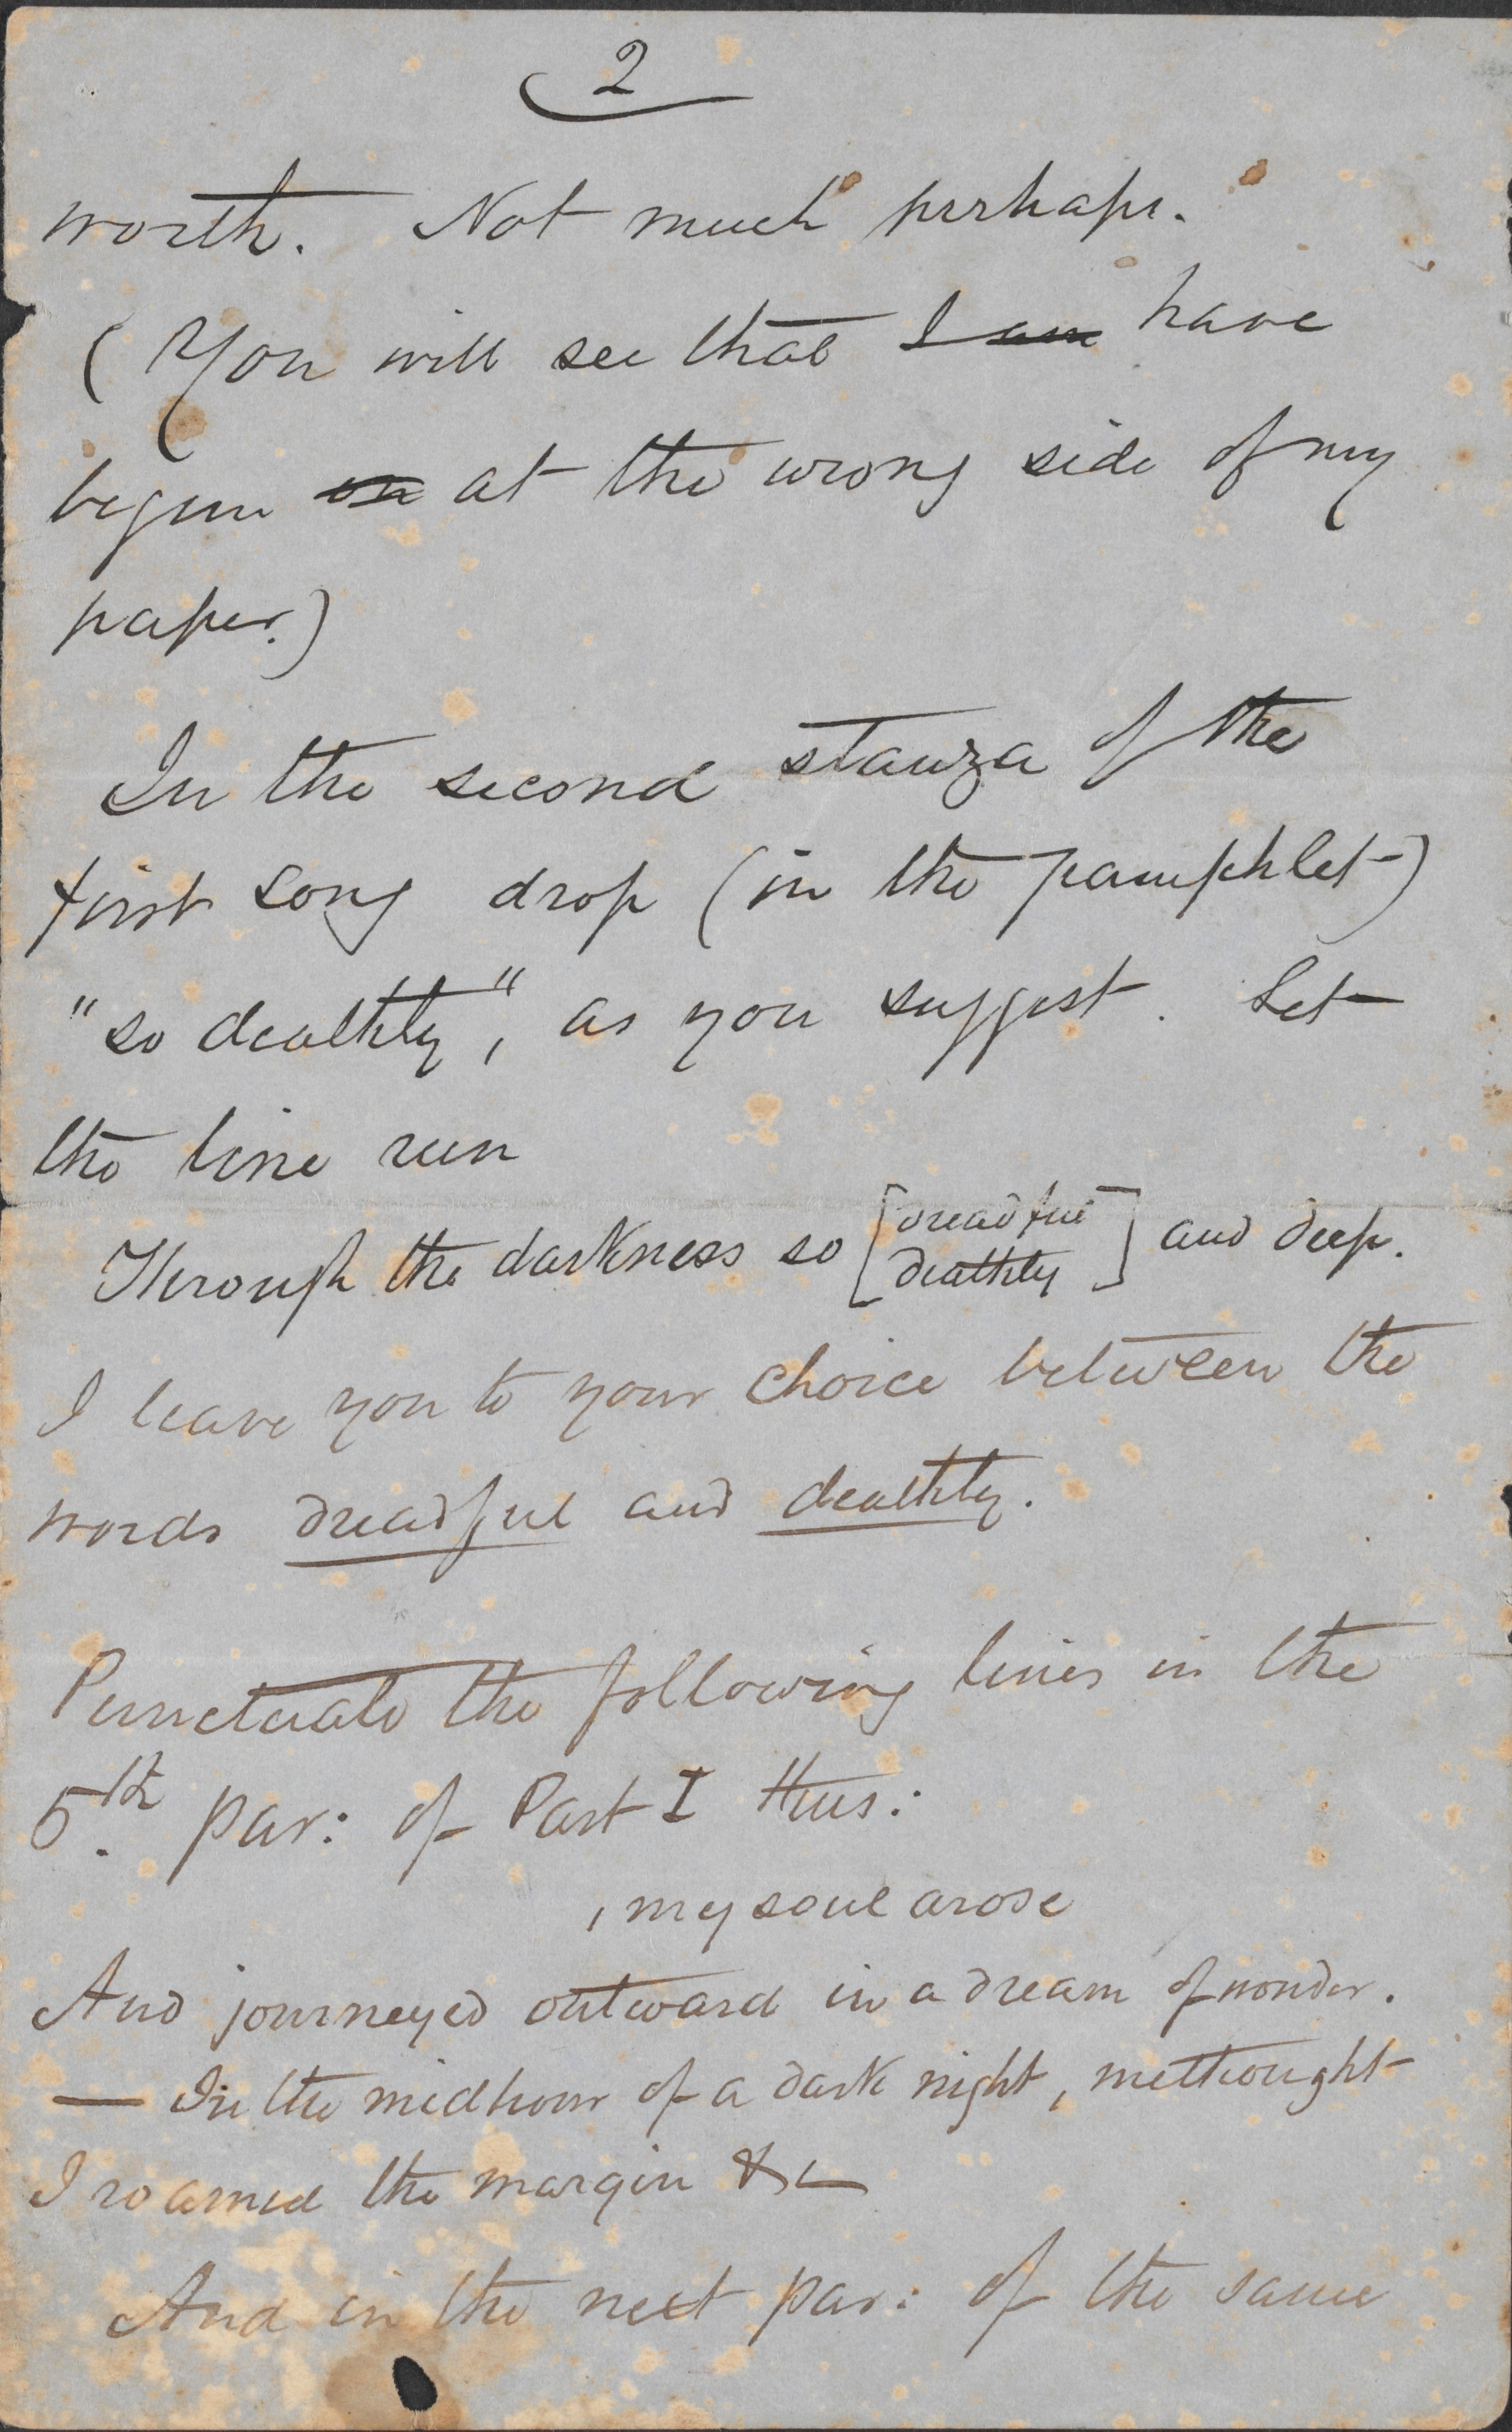 2
worth. Not much perhaps.
(You will see that I am have
begun on at the wrong side of my
paper.)
In the second stanza of the
first song drop (in the pamphlet)
"so deathly", as you suggest. Let
the line run
Through the darkness so [dreadful
deathly] and deep.
I leave you to your choice between the
words dreadful and deathly.
Punctuate the following lines in the
5th. par: of Part I thus:
, my soul arose
And journeyed outward in a dream of wonder.
— In the midhour of a dark night, methought
I roamed the margin &c
And in the next par: of the same